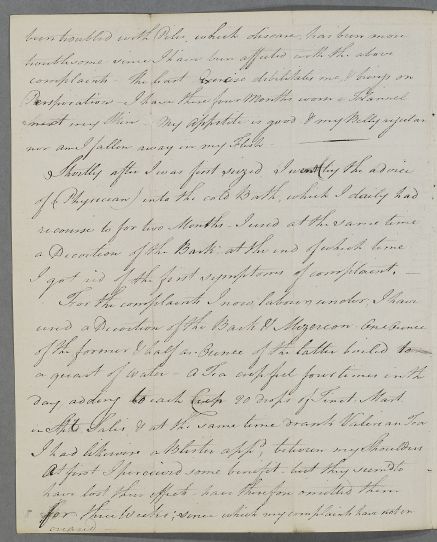 been troubled with Piles, which disease, has been more
troublesome since I have been affected with the above
complaint - the least Exercise debilitates me, & brings on
Perspiration - I have these four Months worn a Flannel
next my Skin - My Appetite is good & my Belly regular
nor am I fallen away in my Flesh -
Shortly after I was first seized I went by the advice
of (Physician) into the cold Bath, which I daily had
recourse to for two Months - I used at the same time
a Decoction of the Bark: at the end of which time
I got rid of the first symptoms of complaint. -
For the complaint I now labour under, I have
used a Decoction of the Bark & Mezereon - One Ounce
of the former & half an Ounce of the latter boiled to
a quart of Water - A Tea cupful four times in the
day adding to each Cup 20 drops of Tinct. Mart.
in Spt. Salis & at the same time drank Valerian Tea
I had likewise a Blister app'd, between my Shoulders
At first I perceived some benefit - but they seem to
have lost their effect - have therefore omitted them
for three Weeks; since which my complaint have not in
creased